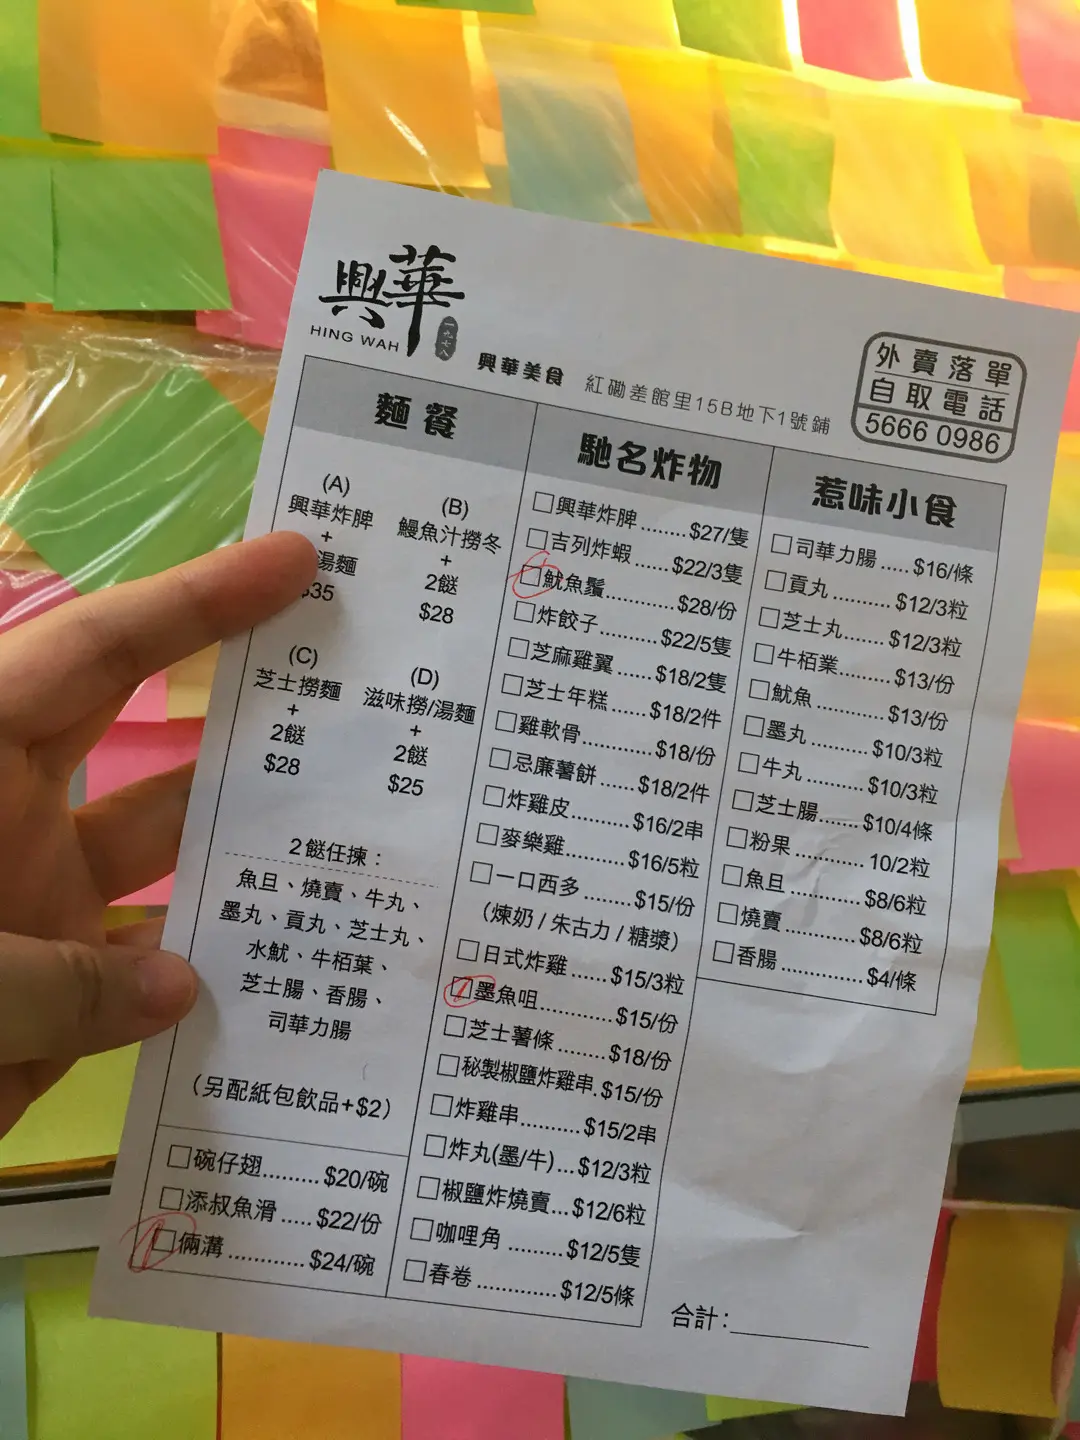 興華
HING WAH
一九七八
興華美食 紅磡差館里15B地下1號鋪
外賣落單
自取電話
5666 0986
麵餐
(A)
興華炸脾
+
湯麵
$35
(B)
鰻魚汁撈冬
+
2餸
$28
(C)
芝士撈麵
+
2餸
$28
(D)
滋味撈/湯麵
+
2餸
$25
2餸任揀：
魚旦、燒賣、牛丸、
墨丸、貢丸、芝士丸、
水魷、牛栢葉、
芝士腸、香腸、
司華力腸
（另配紙包飲品+$2）
碗仔翅.........$20/碗
添叔魚滑.....$22/份
倆溝............$24/碗
馳名炸物
興華炸脾.......$27/隻
吉列炸蝦......$22/3隻
魷魚鬚............$28/份
炸餃子.........$22/5隻
芝麻雞翼......$18/2隻
芝士年糕......$18/2件
雞軟骨............$18/份
忌廉薯餅......$18/2件
炸雞皮..........$16/2串
麥樂雞..........$16/5粒
一口西多........$15/份
（煉奶 / 朱古力 / 糖漿）
日式炸雞......$15/3粒
墨魚咀............$15/份
芝士薯條........$18/份
秘製椒鹽炸雞串.$15/份
炸雞串..........$15/2串
炸丸(墨/牛)...$12/3粒
椒鹽炸燒賣...$12/6粒
咖哩角.........$12/5隻
春卷............$12/5條
惹味小食
司華力腸.....$16/條
貢丸..........$12/3粒
芝士丸.......$12/3粒
牛栢業..........$13/份
魷魚.............$13/份
墨丸..........$10/3粒
牛丸..........$10/3粒
芝士腸.......$10/4條
粉果............10/2粒
魚旦............$8/6粒
燒賣............$8/6粒
香腸..............$4/條
合計：